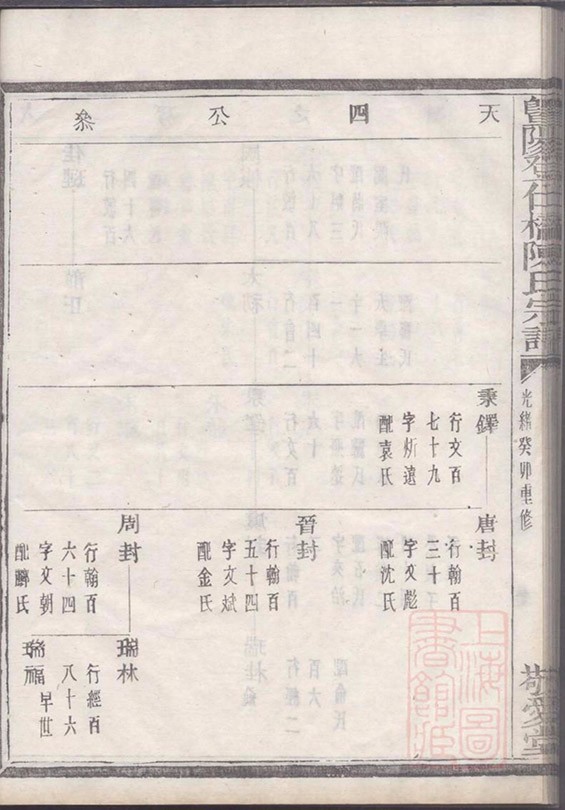 曁陽登仕橋陳氏宗譜
光緒癸卯重修
敬愛堂
天四公叅
秉鐸
行文百
七十九
字炘遠
配袁氏
唐封
行翰百
三十
字文彪
配沈氏
晉封
行翰百
五十四
字文斌
配金氏
周封
行翰百
六十四
字文朝
配酈氏
瑞林
行經百
八十六
瑞福
早世
上海圖
書館藏